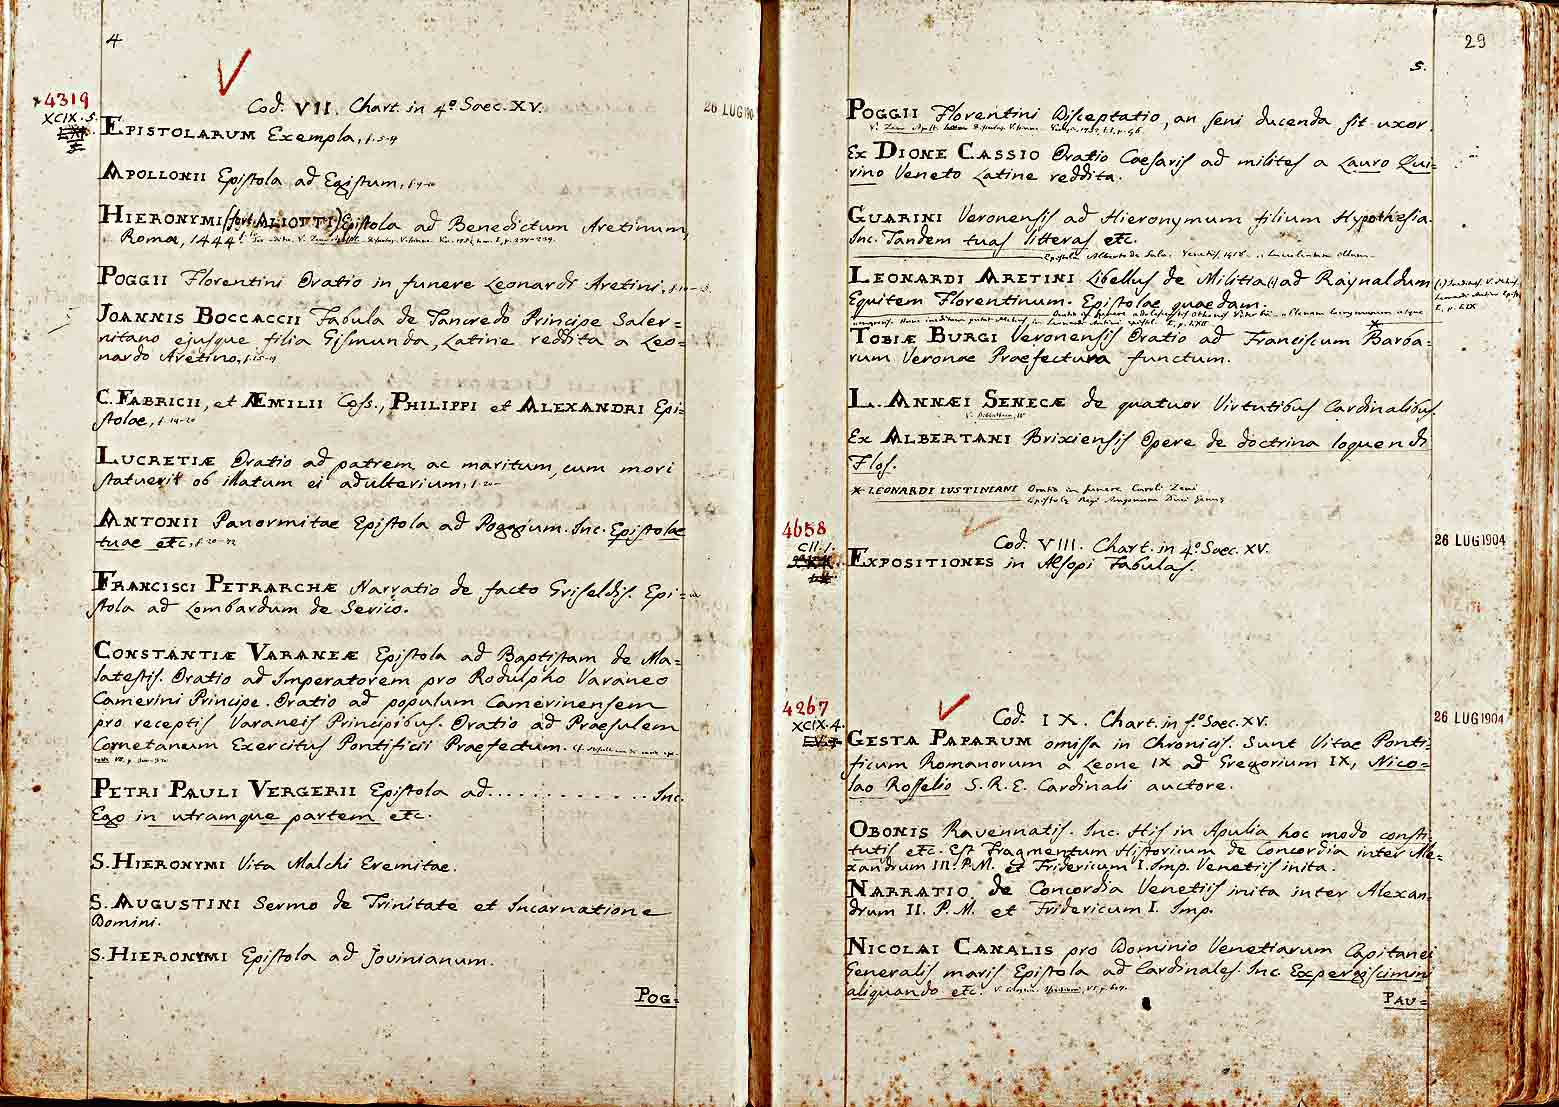 4
4319
XCIX. 5.
26 LUG 190
Cod. VII. Chart. in 4º Saec. XV.
EPISTOLARUM Exempla, f. 5-9
APOLLONII Epistola ad Egistum,
HIERONYMI (fort. ALIOTTI) Epistola ad Benedictum Aretinum,
Roma, 1444
POGGII Florentini Oratio in funere Leonardi Aretini,
JOANNIS BOCCACCII Fabula de Tancredo Principe Saler=
nitano ejusque filia Gismunda, Latine reddita a Leo=
nardo Aretino,
C. FABRICII, et ÆMILII Coss., PHILIPPI et ALEXANDRI Epi=
stolae, f. 19-20
LUCRETIÆ Oratio ad patrem ac maritum, cum mori
statuerit ob illatum ei adulterium, f. 20-
ANTONII Panormitae Epistola ad Poggium. Inc. Epistolae
tuae etc,
FRANCISCI PETRARCHÆ Narratio de facto Griseldis. Epi=
stola ad Lombardum de Serico.
CONSTANTIÆ VARANEÆ Epistola ad Baptistam de Ma=
latestis. Oratio ad Imperatorem pro Rodulpho Varaneo
Camerini Principe. Oratio ad populum Camerinensem
pro receptis Varaneis Principibus. Oratio ad Praesulem
Cornetanum Exercitus Pontificii Praefectum.
PETRI PAULI VERGERII Epistola ad............. Inc.
Ego in utramque partem etc.
S. HIERONYMI Vita Malchi Eremitae.
S. AUGUSTINI Sermo de Trinitate et Incarnatione
Domini.
S. HIERONYMI Epistola ad Jovinianum.
POG=
29
5.
POGGII Florentini Disceptatio, an seni ducenda sit uxor.
Ex DIONE CASSIO Oratio Caesaris ad milites a Lauro Qui=
rino Veneto Latine reddita.
GUARINI Veronensis ad Hieronymum filium Hypothesia.
Inc. Tandem tuas litteras etc.
LEONARDI ARETINI Libellus de Militia (1) ad Raynaldum
Equitem Florentinum. Epistolae quaedam.
TOBIÆ BURGI Veronensis Oratio ad Franciscum Barba=
rum Veronae Praefectura functum.
L. ANNÆI SENECÆ de quatuor Virtutibus Cardinalibus.
Ex ALBERTANI Brixiensis Opere de doctrina loquendi
Flos.
* LEONARDI IUSTINIANI Oratio in funere Caroli Zeni
4658
CII. 1.
26 LUG 1904
Cod. VIII. Chart. in 4º Saec. XV.
EXPOSITIONES in Aesopi Fabulas.
4267
XCIX. 4.
26 LUG 1904
Cod. IX. Chart. in fº Saec. XV.
GESTA PAPARUM omissa in Chronicis. Sunt Vitae Ponti=
ficum Romanorum a Leone IX ad Gregorium IX, Nico=
lao Rosselio S. R. E. Cardinali auctore.
OBONIS Ravennatis. Inc. His in Apulia hoc modo consti=
tutis etc. Est Fragmentum Historicum de Concordia inter Ale=
xandrum III. P. M. et Fridericum I. Imp. Venetiis inita.
NARRATIO de Concordia Venetiis inita inter Alexan=
drum II. P. M. et Fridericum I. Imp.
NICOLAI CANALIS pro Dominio Venetiarum Capitanei
Generalis maris Epistola ad Cardinales. Inc. Expergiscimini
aliquando etc.
PAU=